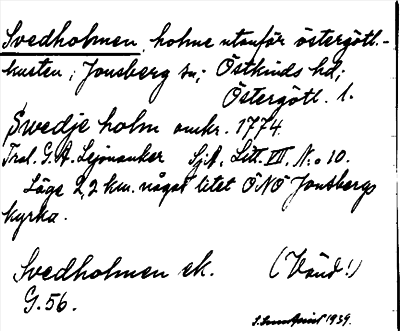 Svedholmen, holme utanför östergötl.-
kusten i Jonsberg sn; Östkinds hd;
Östergötl. l.
Swedje holm omkr. 1774
Trol. G. A. Lejonanker Sjk, Litt. VIII. N:o 10.
Läge 2,2 km. något litet ÖNÖ Jonsbergs
kyrka.
Svedholmen ek. (Vänd!)
G. 56.
1939.